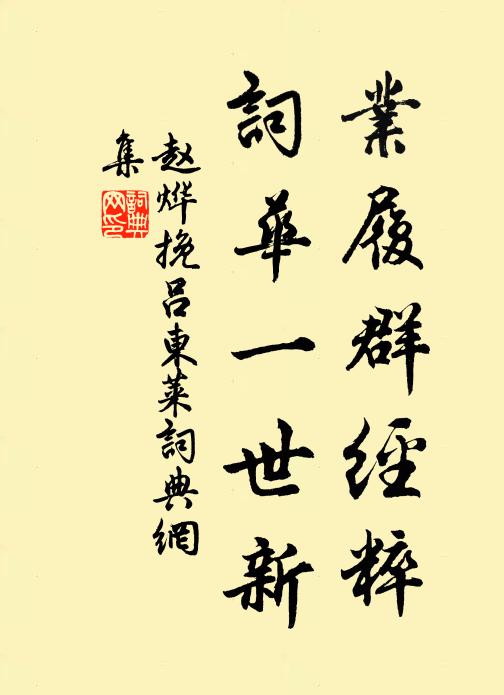 業履群經粹
詞華一世新
赵烨挽吕東萊詞典網
集
詞典網印